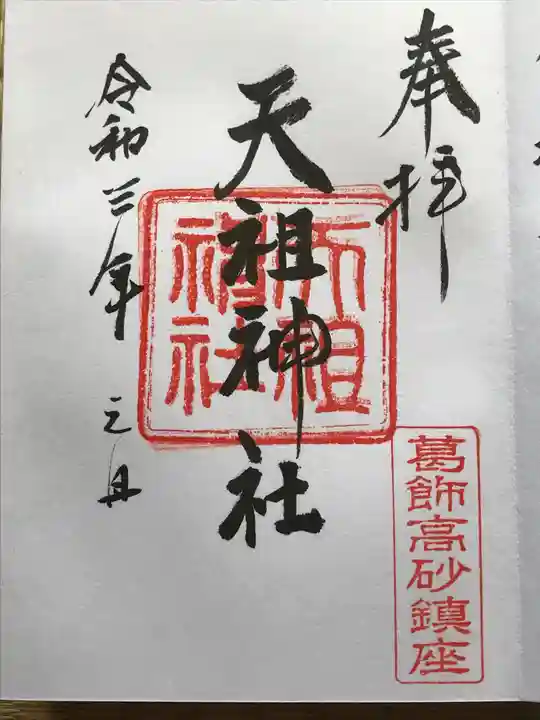 奉拝
葛飾高砂鎮座
天祖神社
天祖
神社
令和三年